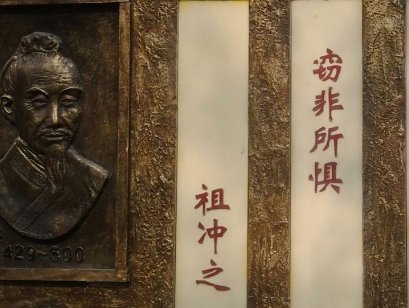 窃非所惧
祖冲之
429~500